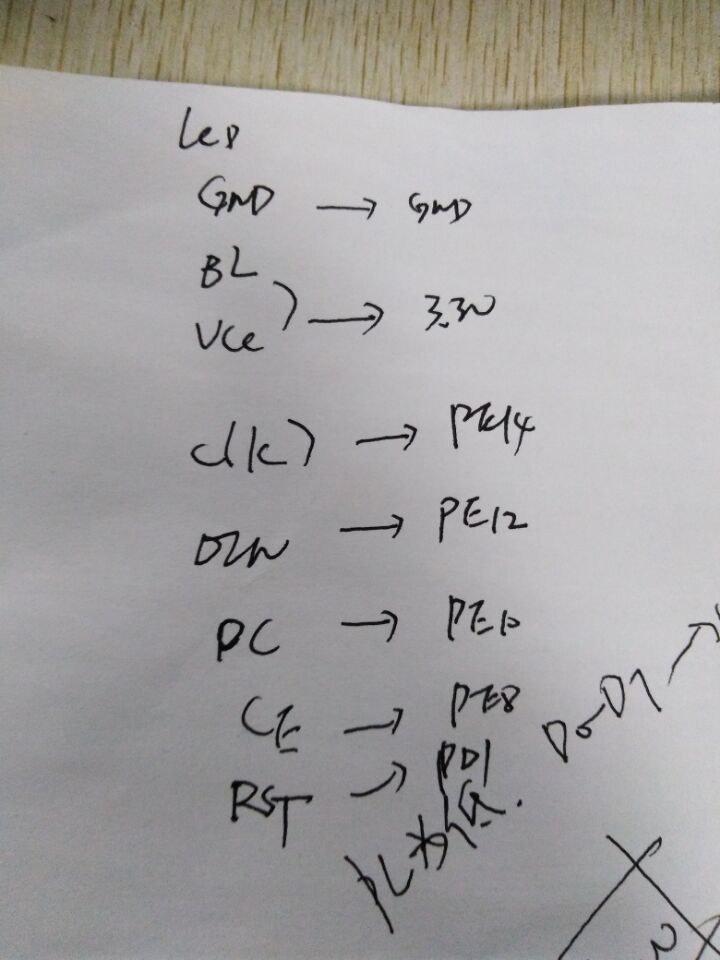 Lcd
GND → GND
BL
VCC → 3.3V
clk → PE14
DIN → PE12
DC → PE10
CE → PE8
RST → PD1
D0~D7 →